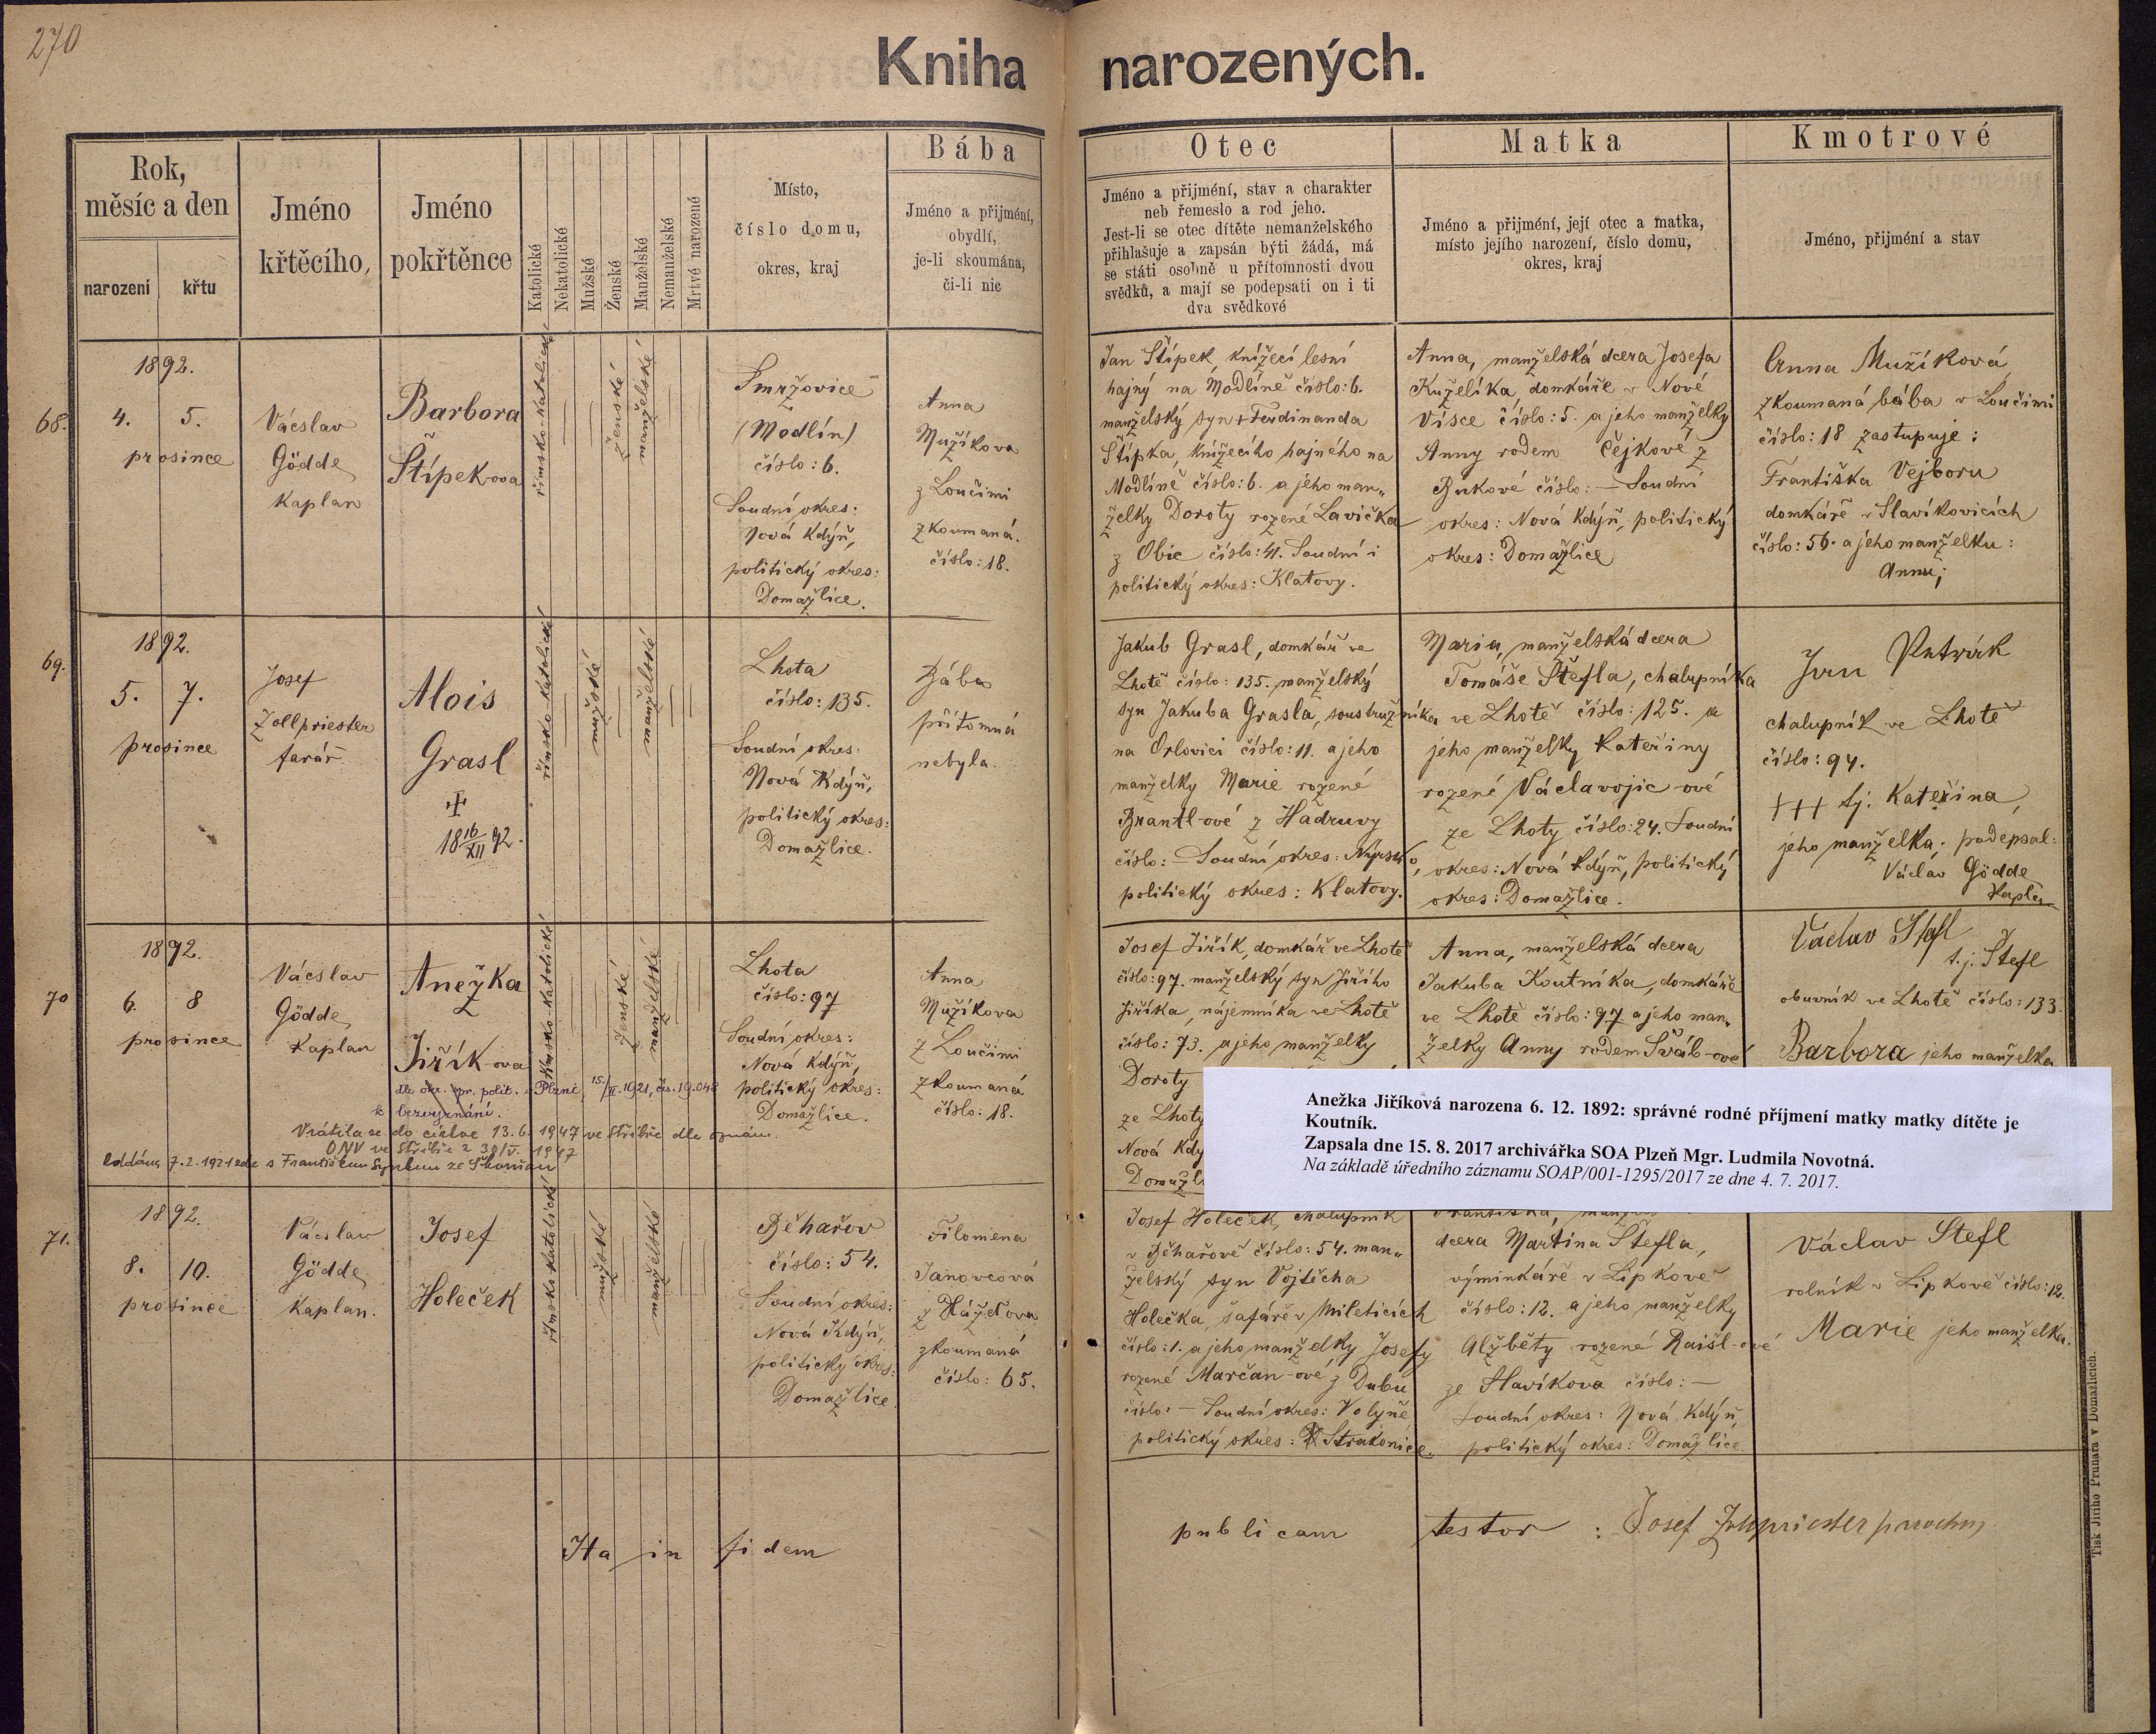 270
Kniha narozených.
Rok, měsíc a den
narození
křtu
Jméno křtěcího,
Jméno pokřtěnce
Katolické
Nekatolické
Mužské
Ženské
Manželské
Nemanželské
Mrtvé narozené
Místo,
číslo domu,
okres, kraj
Bába
Jméno a přijmení,
obydlí,
je-li skoumána,
či-li nic
Otec
Jméno a přijmení, stav a charakter
neb řemeslo a rod jeho.
Jest-li se otec dítěte nemanželského
přihlašuje a zapsán býti žádá, má
se státi osobně u přítomnosti dvou
svědků, a mají se podepsati on i ti
dva svědkové
Matka
Jméno a přijmení, její otec a matka,
místo jejího narození, číslo domu,
okres, kraj
Kmotrové
Jméno, přijmení a stav
68.
1892.
4. 5.
prosince
Vácslav
Gödde
Kaplan
Barbora
Štípek-ova
římsko-katolické
ženské
manželské
Smržovice
(Modlín)
číslo: 6.
Soudní okres:
Nová Kdýň,
politický okres:
Domažlice.
Anna
Mužíkova
z Loučimi
zkoumaná.
číslo: 18.
Jan Štípek, knížecí lesní
hajný na Modlíně číslo: 6.
manželský syn + Ferdinanda
Štípka, knížecího hajného na
Modlíně číslo: 6. a jeho man„
želky Doroty rozené Lavička
z Obic číslo: 41. Soudní i
politický okres: Klatovy.
Anna, manželská dcera Josefa
Kuželíka, domkáře v Nové
Vísce číslo: 5. a jeho manželky
Anny rodem Čejkové z
Bukové číslo: — Soudní
okres: Nová Kdýň, politický
okres: Domažlice
Anna Mužíková
zkoumaná bába v Loučimi
číslo: 18 zastupuje:
Františka Vejboru
domkáře v Slavíkovicích
číslo: 56. a jeho manželku:
Annu;
69.
1892.
5. 7.
prosince
Josef
Zollpriester
farář
Alois
Grasl
18 16/XII 92.
římsko-katolické
mužské
manželské
Lhota
číslo: 135.
Soudní okres:
Nová Kdýň,
politický okres:
Domažlice.
Bába
přítomná
nebyla.
Jakub Grasl, domkář ve
Lhotě číslo: 135. manželský
syn Jakuba Grasla, soustružníka
na Orlovici číslo: 11. a jeho
manželky Marie rozené
Brantl-ové z Hadruvy
číslo: Soudní okres: Nýrsko,
politický okres: Klatovy.
Maria, manželská dcera
Tomáše Štefla, chalupníka
ve Lhotě číslo: 125. a
jeho manželky Kateřiny
rozené Václavojic-ové
ze Lhoty číslo: 24. Soudní
okres: Nová Kdýň, politický
okres: Domažlice.
Jan Petrák
chalupník ve Lhotě
číslo: 94.
+++ tj. Kateřina,
jeho manželka. podepsal:
Václav Gödde
Kaplan
70
1892.
6. 8
prosince
Vácslav
Gödde
Kaplan
Anežka
Jiřík-ova
dle okr. spr. polit. v Plzni, 15/II. 1921, čís. 19.048
k bezvyznání.
Vrátila se do církve 13. 6. 1947 ve Stříbře dle oznám.
ONV ve Stříbře z 30/V. 1947
oddána 7. 2. 1921 zde s Františkem
římsko-katolické
ženské
manželské
Lhota
číslo: 97
Soudní okres:
Nová Kdýň,
politický okres:
Domažlice.
Anna
Mužíkova
z Loučimi
zkoumaná
číslo: 18.
Josef Jiřík, domkář ve Lhotě
číslo: 97. manželský syn Jiřího
Jiříka, nájemníka ve Lhotě
číslo: 73. a jeho manželky
Doroty
ze Lhoty
Nová Kdý
Domažl
Anna, manželská dcera
Jakuba Koutníka, domkáře
ve Lhotě číslo: 97 a jeho man„
želky Anny rodem Šváb-ové
Václav Stefl
t. j. Štefl
obuvník ve Lhotě číslo: 133.
Barbora jeho manželka
Anežka Jiříková narozena 6. 12. 1892: správné rodné příjmení matky matky dítěte je
Koutník.
Zapsala dne 15. 8. 2017 archivářka SOA Plzeň Mgr. Ludmila Novotná.
Na základě úředního záznamu SOAP/001-1295/2017 ze dne 4. 7. 2017.
71.
1892.
8. 10.
prosince
Vácslav
Gödde
Kaplan.
Josef
Holeček
římsko katolické
mužské
manželské
Běhařov
číslo: 54.
Soudní okres:
Nová Kdýň,
politický okres:
Domažlice.
Filomena
Janovcová
zkoumaná
číslo: 65.
Josef Holeček, chalupník
v Běhařově číslo: 54. man„
želský syn Vojtěcha
Holečka, šafáře v Mileticích
číslo: 1. a jeho manželky Josefy
rozené Marčan-ové z Dubu
číslo: — Soudní okres: Volyně
politický okres: Strakonice.
Františka,
dcera Martina Štefla,
výminkáře v Lipkově
číslo: 12. a jeho manželky
Alžběty rozené Raišl-ové
ze Slavíkova číslo: —
Soudní okres: Nová Kdýň,
politický okres: Domažlice
Václav Stefl
rolník v Lipkově číslo: 12.
Marie jeho manželka.
Ita in fidem publicam testor: Josef Zollpriester
Tisk Jiřího Prunara v Domažlicích.